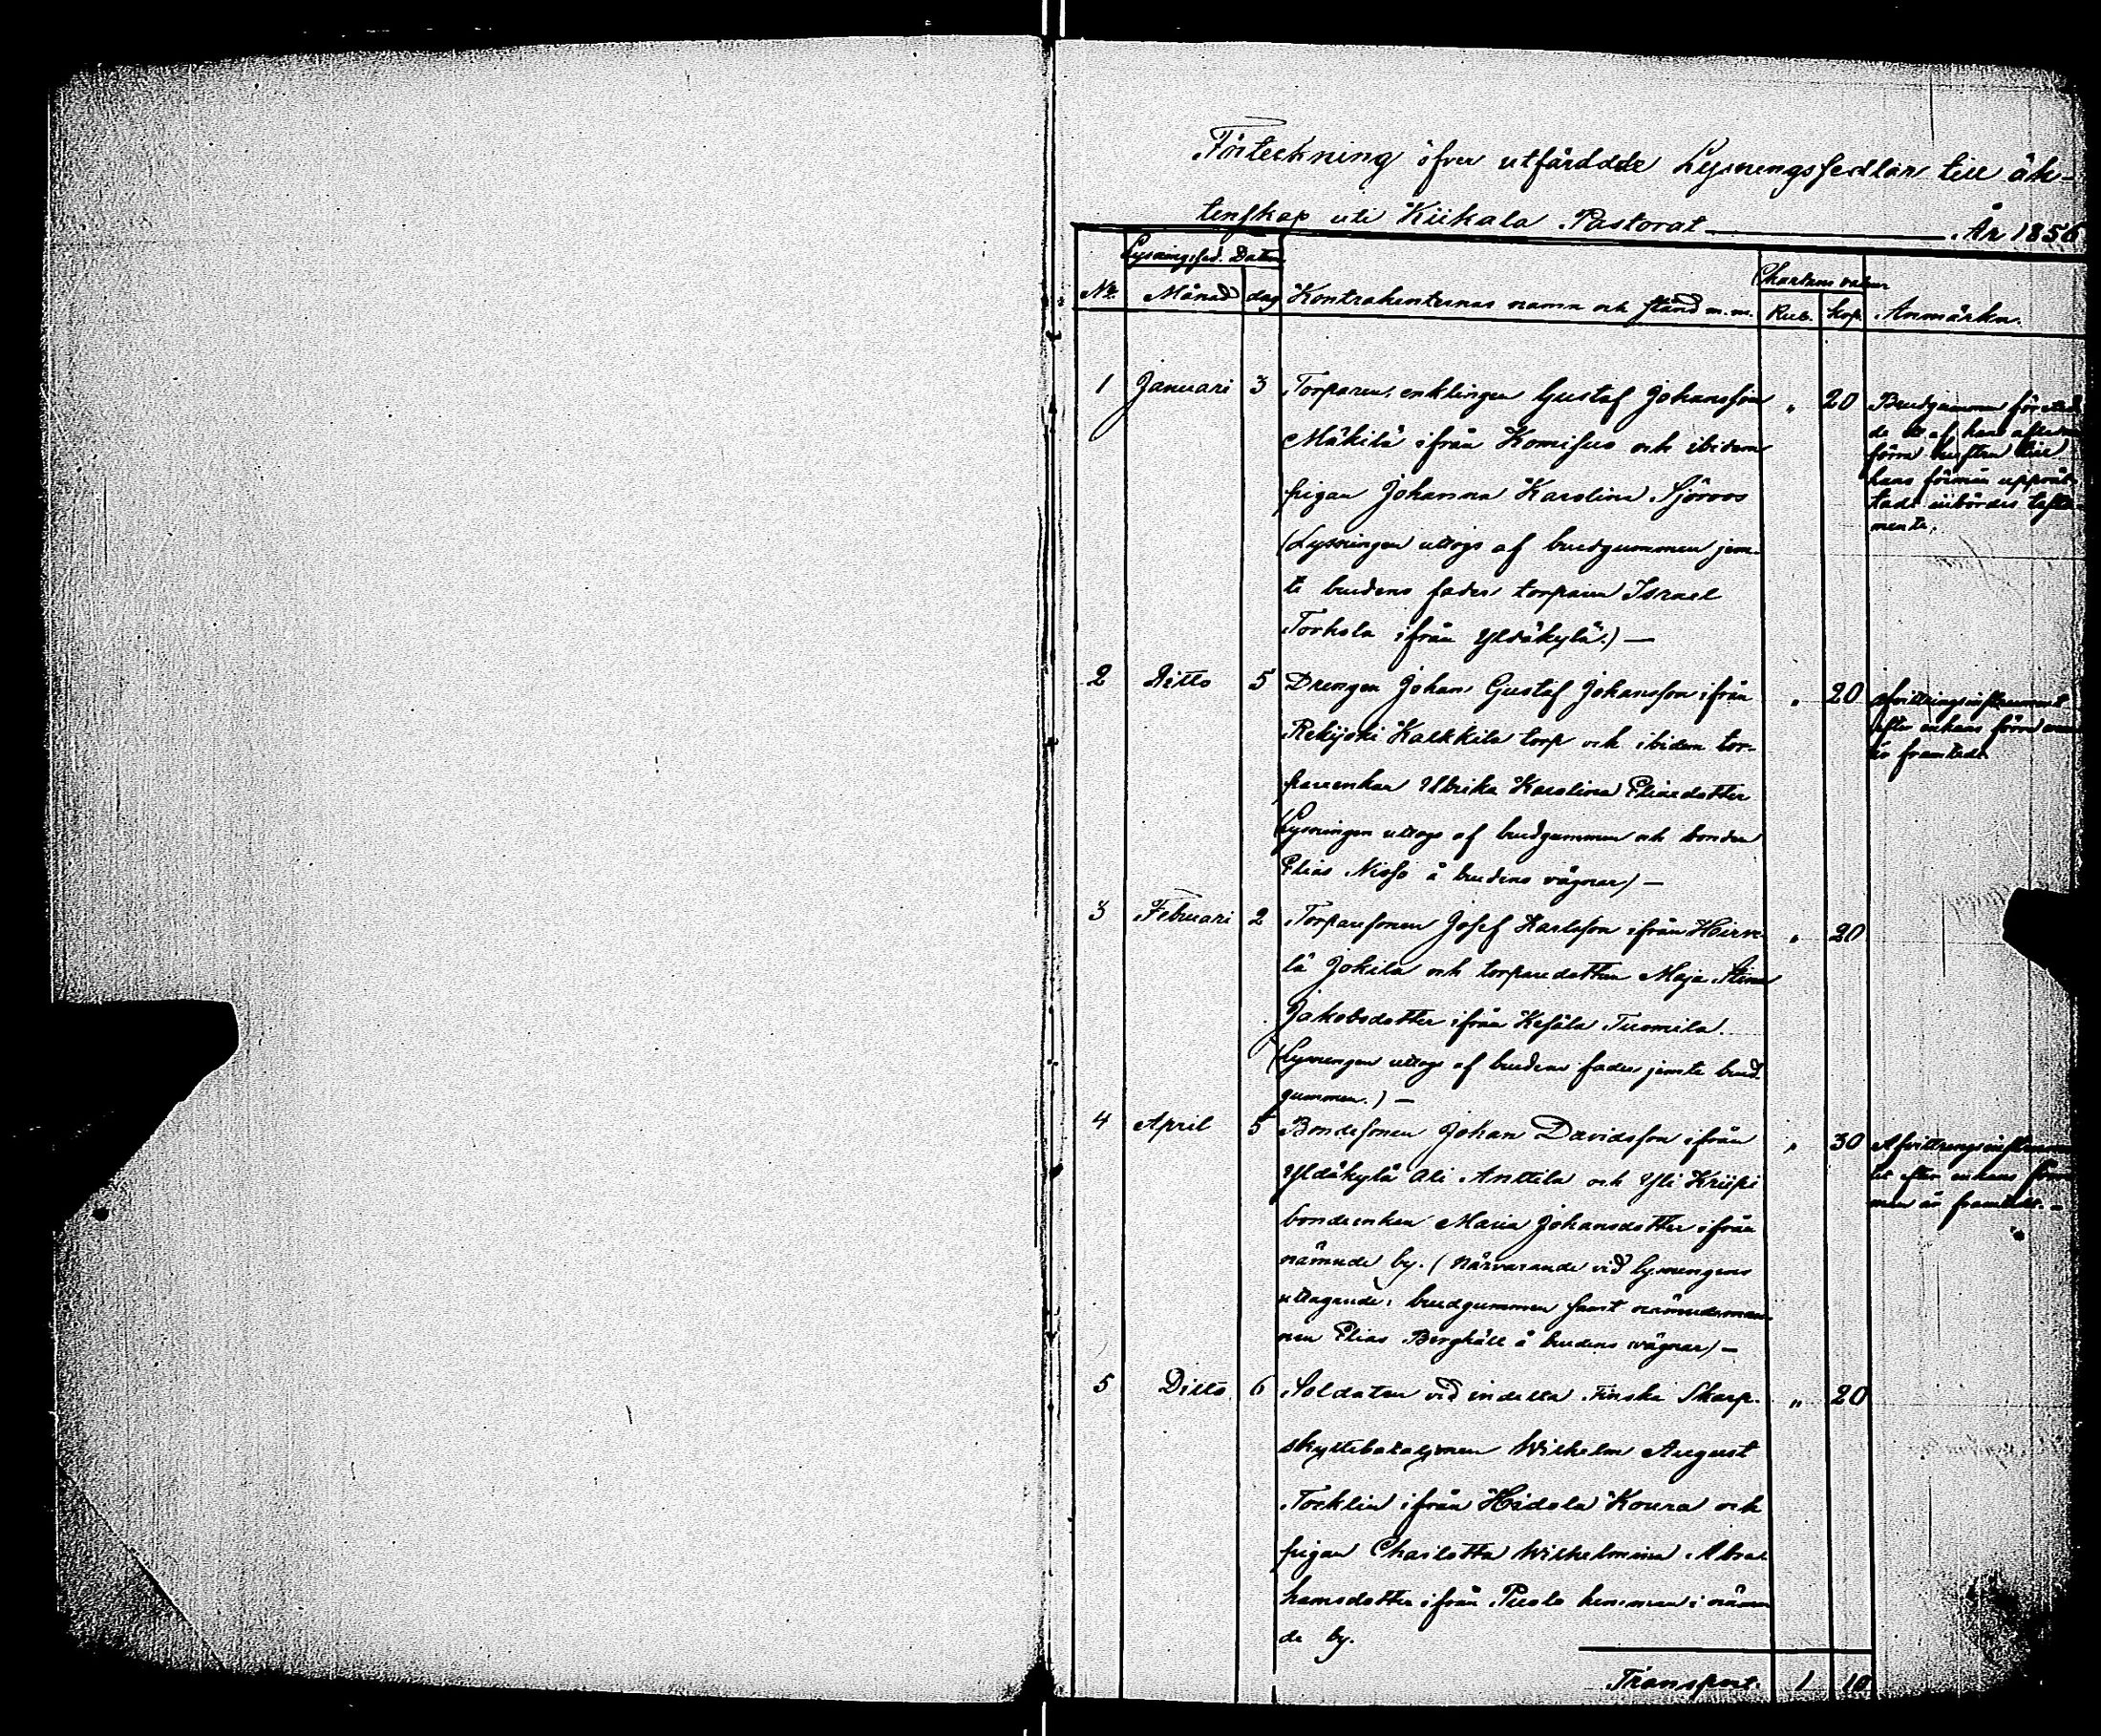 Förteckning öfver utfärdade Lysningssedlar till äk-
tenskap uti Kiikala Pastorat ———— År 1856
Lysningssed. Datum Chartans valeur
No. Månad dag Kontrahenternas namn och stånd m. m. Rub. Kop. Anmärkn.
1 Januari 3 Torparen, enklingen Gustaf Johansson „ 20
Mäkilä ifrån Komisuo och ibidem
pigan Johanna Karolina Sjöroos
(Lysningen uttogs af brudgummen jem-
te brudens fader torparen Israel
Torkola ifrån Yldäkylä.) —
Brudgummen
de af hans
förra hustru till
hans förmån upprät-
tade inbördes testa-
mente.
2 Ditto 5 Drengen Johan Gustaf Johansson ifrån „ 20
Rekijoki Kalkkila torp och ibidem tor-
pareenkan Ulrika Karolina Eliaedotter
(Lysningen uttogs af brudgummen och bonden
Elias Nisso å brudens vägnar) —
Afvittringsinstrument
efter enkans förra man
är framtedt
3 Februari 2 Torparesonen Josef Karlsson ifrån Hirve- „ 20
lä Jokila och torparedottren Maja Stina
Jakobsdotter ifrån Kesälä Tuomila.
(Lysningen uttogs af brudens fader jemte brud-
gummen.) —
4 April 5 Bondesonen Johan Davidsson ifrån „ 30
Yldäkylä Ali Anttila och Yli Kriipi
bondeenkan Maria Johansdotter ifrån
nämnde by. (Närvarande vid lysningens
uttagande: brudgummen samt nämndeman-
nen Elias Berghäll å brudens vägnar) —
Afvittringsinstrumen-
tet efter enkans förra
man är framtedt. —
5 Ditto 6 Soldaten vid indelta Finska Skarp- „ 20
skyttebataljonen Wilhelm August
Torklin ifrån Hidola Koura och
pigan Charlotta Wilhelmina Abra-
hamsdotter ifrån Puolo hemman i nämn-
de by.
Transport. 1 10